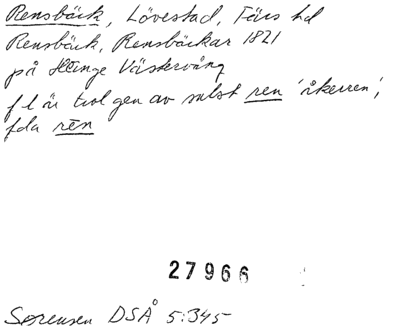 Rensbäck, Lövestad, Färs hd
Rensbäck, Rensbäckar 1821
på Heinge Västervång
f l är trol gen av subst ren 'åkerren',
fda rēn
27966
Sørensen DSÅ 5:345